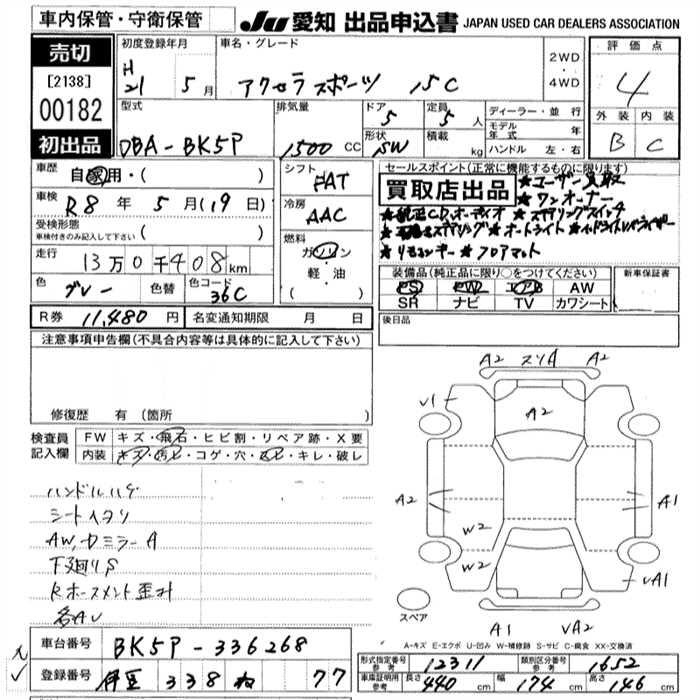 車内保管・守衛保管
JU 愛知 出品申込書 JAPAN USED CAR DEALERS ASSOCIATION
売切
[2138]
00182
初出品
初度登録年月
H
21 5月
車名・グレード
アクセラスポーツ 15C
2WD
・
4WD
評価点
4
外装 内装
B C
型式
DBA-BK5P
排気量
1500 CC
ドア
5
形状
SW
定員
5 人
積載
kg
ディーラー・並行
モデル年式 年
ハンドル 左・右
車歴
自家用・( )
車検
R8年 5月(19日)
受検形態
車検付きのみ記入して下さい ( )
走行
13万0千408km
色
グレー
色替
色コード
36C
シフト
FAT
冷房
AAC
燃料
ガソリン
軽・油
( )
セールスポイント(正常に機能するものに限ります)
買取店出品
★ユーザー買取
★ワンオーナー
★純正CD,オーディオ ★ステアリングスイッチ
ステアリング ★オートライト ★ヘッドライトレベライザー
★リモコンキー ★フロアマット
装備品(純正品に限り○をつけてください)
PS PW エアB AW
SR ナビ TV カワシート
新車保証書
R券 11,480円
名変通知期限 月 日
後日品
注意事項申告欄(不具合内容等は具体的に記入して下さい)
修復歴 有(箇所 )
検査員
記入欄
FW キズ・飛石・ヒビ割・リペア跡・X要
内装 キズ・汚レ・コゲ・穴・スレ・キレ・破レ
ハンドルハゲ
シートヘタリ
AW,ドミラーA
下廻りS
Rホースメント歪み
各AU
A2 スリA A2
V1
A2
A2
A1
W2
W2
VA1
スペア
A1 VA2
A-キズ E-エクボ U-凹み W-補修跡 S-サビ C-腐食 XX-交換済
車台番号 BK5P-336268
登録番号 伊豆 338 ね 77
形式指定番号
参考
12311
類別区分番号
参考
1652
車庫証明用
参考
長さ 440cm
幅 174cm
高さ 146cm